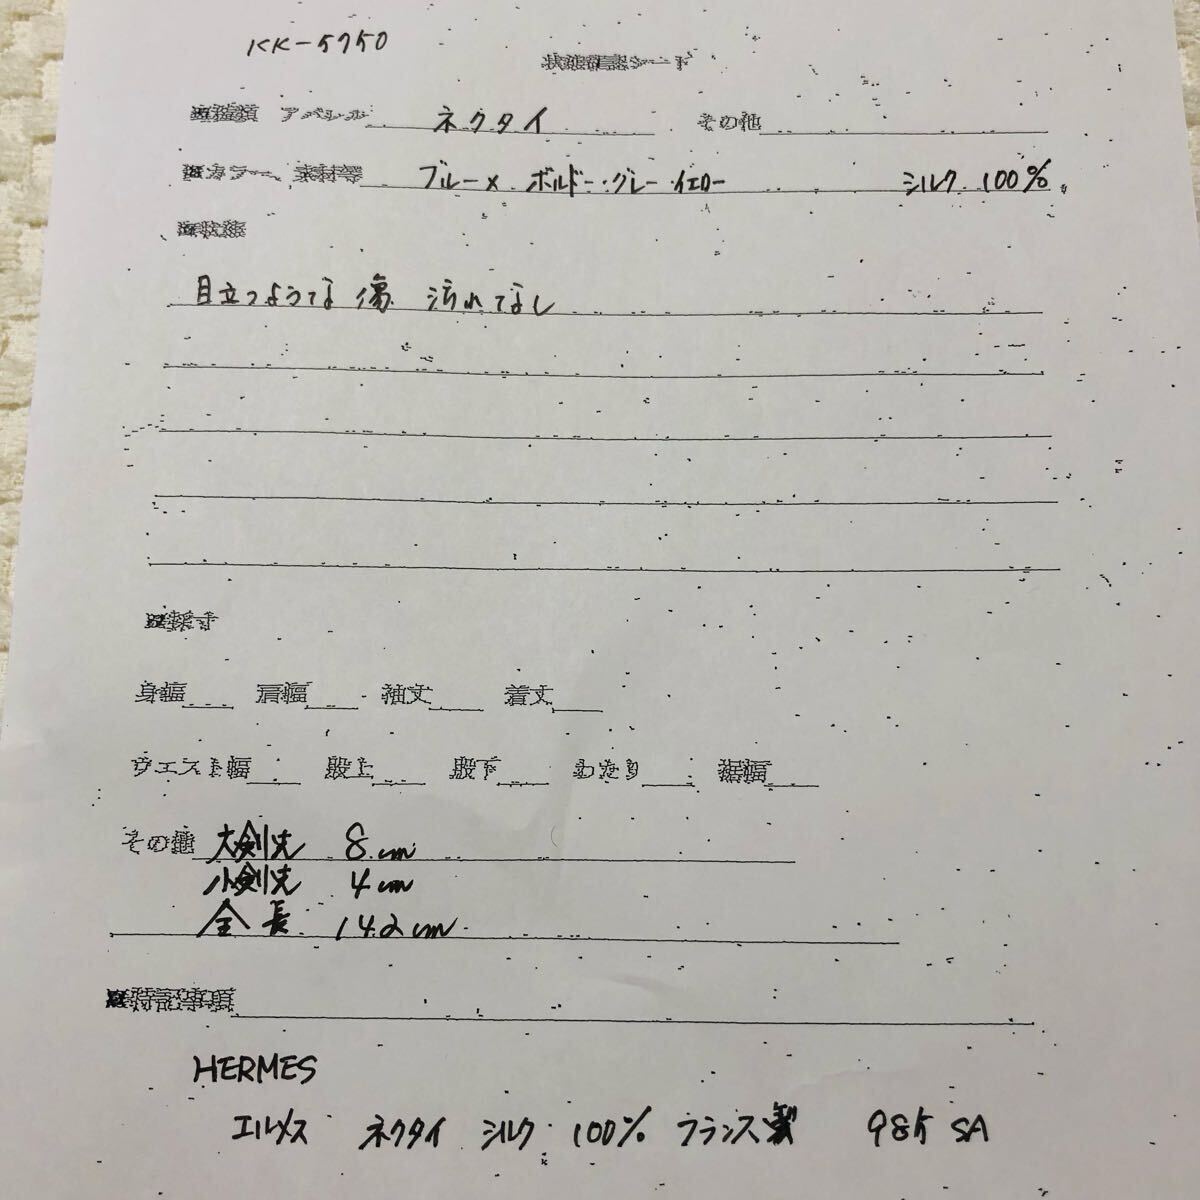 KK-5750
状態確認シート
※種類 アパレル ネクタイ その他
※カラー、素材等 ブルー× ボルドー・グレー・イエロー シルク 100%
※状態
目立つような傷 汚れてなし
※採寸
身幅 肩幅 袖丈 着丈
ウエスト幅 股上 股下 わたり 裾幅
その他 大剣先 8cm
小剣先 4cm
全長 142cm
※特記事項
HERMES
エルメス ネクタイ シルク 100% フランス製 985 SA